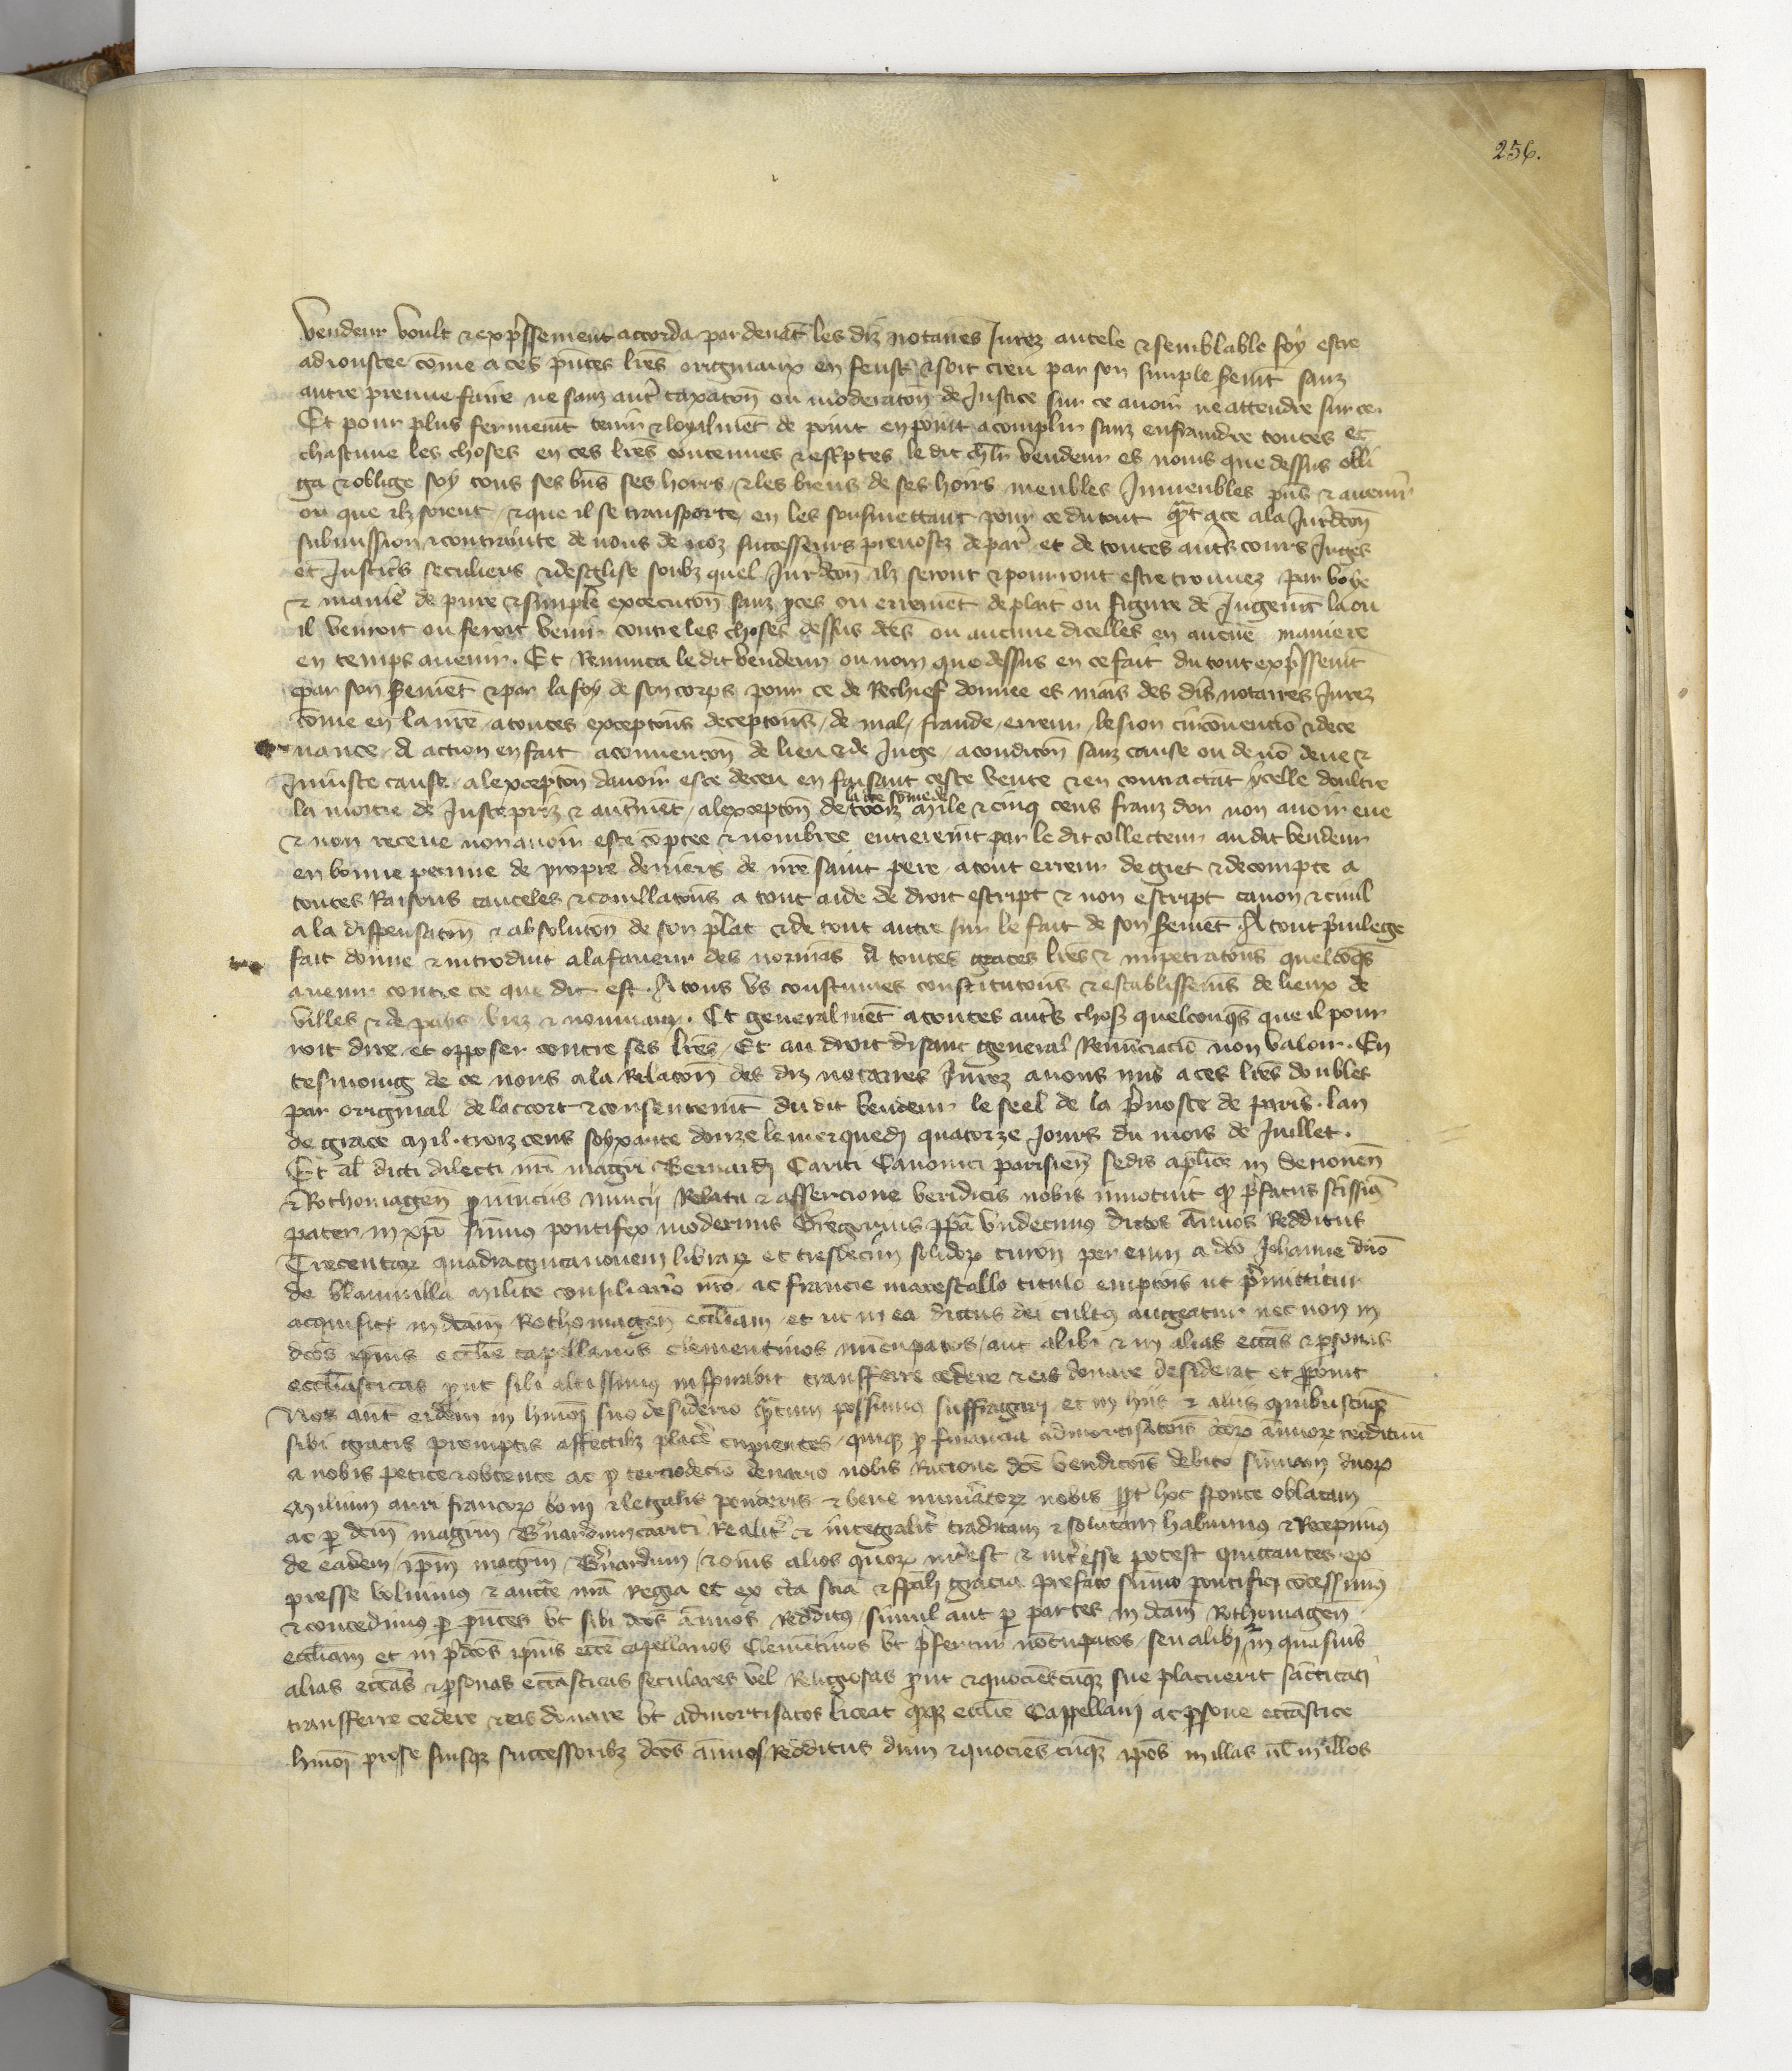 256.
vendeur voult & expssement accorda par devat les diz notaires Jurez autele & semblable foy estre
adioustee come a ces pntes lres originaulx en feust & soit creu par son simple seremt sanz
autre preuve faire ne sanz autre taxaton ou moderaton de Justice sur ce avoir ne attendre sur ce.
Et pour plus fermemt tenir & loyalmet de point en point acomplir sanz enfraindre toutes et
chascune les choses en ces lres contenues & escptes le dit chlr vendeur es noms que dessus obli
ga & oblige soy tous ses bns ses hoirs & les biens de ses hoirs meubles Inmeubles pns & avenir
ou que ilz soient & que il se transporte en les sousmettant pour ce du tout qut a ce a la Jurdcon
submission & contrainte de nous de noz successeurs prevostz de par et de toutes autrs cours Juges
et Justices seculiers & desglise soubz quel Jurdcon ilz seront & pourront estre trouvez par voye
& maniere de pure & simple execucon sanz pces ou erremet de plait ou figure de Jugemt la ou
il venroit ou feroit venir contre les choses dessus dtes ou aucune dicelles en aucune maniere
en temps avenir. Et Renunca le dit vendeur ou nom que dessus en ce fait du tout expssemt
par son seremet & par la foy de son corps pour ce de Rechief donnee es mais des dis notaires Jurez
come en la nre a toutes exceptons deceptons de mal fraude erreur lesion circonvencio & dece
vance A action en fait a convencon de lieu & de Juge a condicon sanz cause ou de no deue &
Iniuste cause a lexcepton davoir este deceu en faisant ceste vente & en contractat ycelle doultre
la moitie de Juste pris & autmet a lexcepton de la dte some de troiz mile & cinq cens franz dor non avoir eue
& non receue non avoir este coptee & nombree entieremt par le dit collecteur au dit vendeur
en bonne pecune de propre deniers de nre saint pere a tout erreur de giet & de compte a
toutes Raisons cauteles & cavillatons a tout aide de droit escript & non escript canon & civil
a la dispensaton & absoluton de son plat & de tout autre sur le fait de son seremet. A tout privilege
fait donne & introduit a la faveur des normas A toutes graces lres & impetratons quelcoqs
avenir contre ce que dit est. A tous us coustumes constitutons & establissems de lieux de
villes & de pais viez & nouveaux. Et generalmet a toutes autrs chos quelconqs que il pour
roit dire et opposer contre ses lres Et au droit disant general Renunciacio non valoir. En
tesmoing de ce nous a la Relacon des diz notaires Jurez avons mis a ces lres doubles
par original de laccort & consentemt du dit vendeur le seel de la pvoste de paris. lan
de grace mil. troiz cens soixante douze le merquedj quatorze Jours du mois de Juillet.
Et al dicti dilecti nri magri Bernardj Cariti Canonici parisien sedis aplice in Senonen
& Rothomagen provinciis nuncij Relatu & assercione veridicis nobis innotuit qd pfatus scissim
pater in xpo sumus pontifex modernus Gregorius papa undecimus dictos annuos Redditus
Trecentar quadragintanovem librar et tresdecim solidor turon per eum a dco Johanne dno
de blainvilla milite consiliario nro ac francie marescallo titulo emptois ut pmittitur
acquisit in dcam Rothomagen eccliam et ut in ea dictus dei cultus augeatur nec non in
dcos ipius ecclie capellanos clementinos nucupatos aut alibi & in alias eccas & psonas
eccliasticas put sibi altissimus inspirabit transferre cedere & eis donare desiderat et pponit
Nos aut eidem in hmoi suo desiderio qtum possumus suffragarj et in hiis & aliis quibuscuq
sibi gratis promptis affectibz place cupientes quiq p financia admortisatois dcor annuor reddituu
a nobis petite & obtente ac p terciodecio denario nobis Racione dce vendicois debito summam duor
milium auri francor boni & legalis ponderis & bene numerator nobis ppt hoc sponte oblatam
ac p dcm magrm Bernardum cariti Realit & integralit traditam & solutam habuimus & Recepimus
de eadem ipm magrm Bernardum & omis alios quor intest & intesse potest quittantes ex
presse volumus & aucte nra Regia et ex cta scia & spalj gracia prefato sumo pontifici concessimus
& concedimus p pntes ut sibi dcos annuos Redditus simul aut p partes in dcam Rothomagen
eccliam et in pdcos ipius ecce capellanos Clementinos ut pfertur nocupatos seu alibj & in quasvis
alias eccas & psonas eccasticas seculares vel Religiosas put & quocienscuq sue placuerit sactitati
transferre cedere & eis donare ut admortisatos liceat qdq ecclie Cappellanj ac psone eccastice
hmoi pro se suisq successoribz dcos annuos Redditus dum & quocienscuq ipos in illas ul in illos